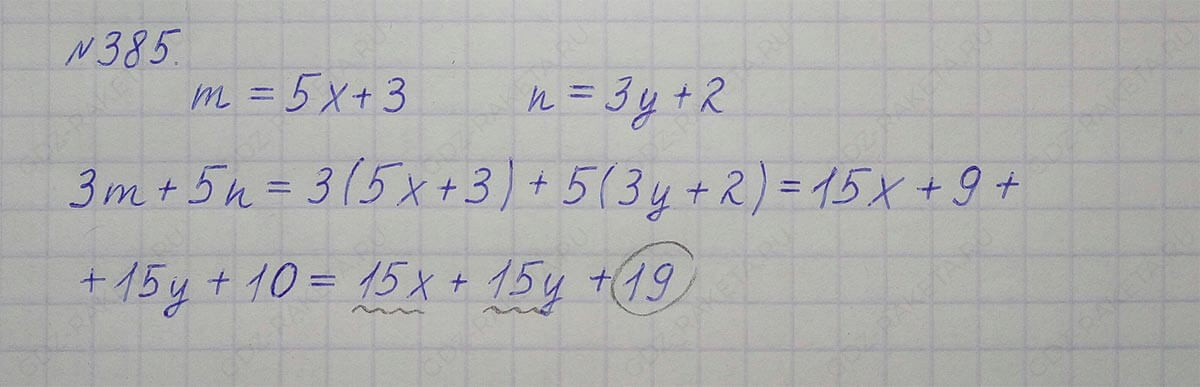 №385.
m = 5x + 3 n = 3y + 2
3m + 5n = 3(5x + 3) + 5(3y + 2) = 15x + 9 +
+ 15y + 10 = 15x + 15y + 19